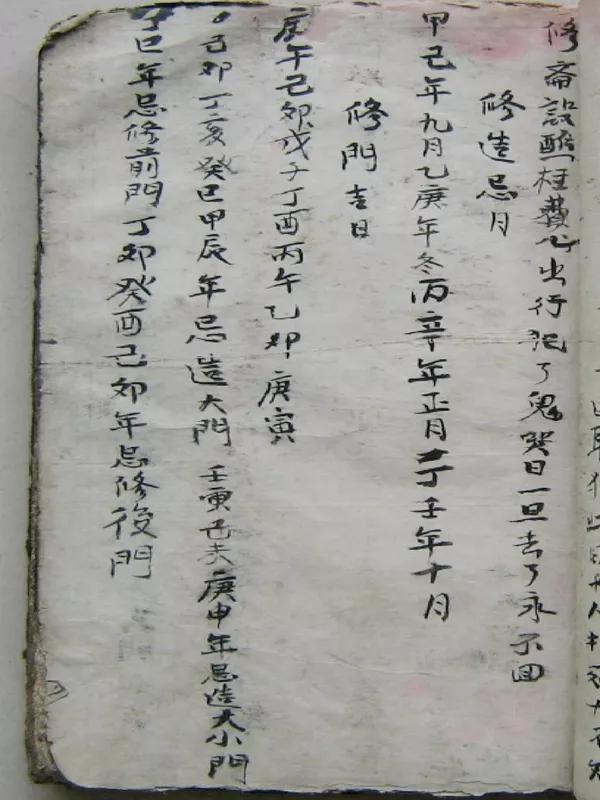 修斎設醮枉費心出行犯了鬼哭日一旦去了永不回
修造忌月
甲己年九月乙庚年冬丙辛年正月二丁壬年十月
修門吉日
庚午己卯戊子丁酉丙午乙卯庚寅
己卯丁亥癸巳甲辰年忌造大門壬寅己未庚申年忌造大小門
丁巳年忌修前門丁卯癸酉己卯年忌修後門